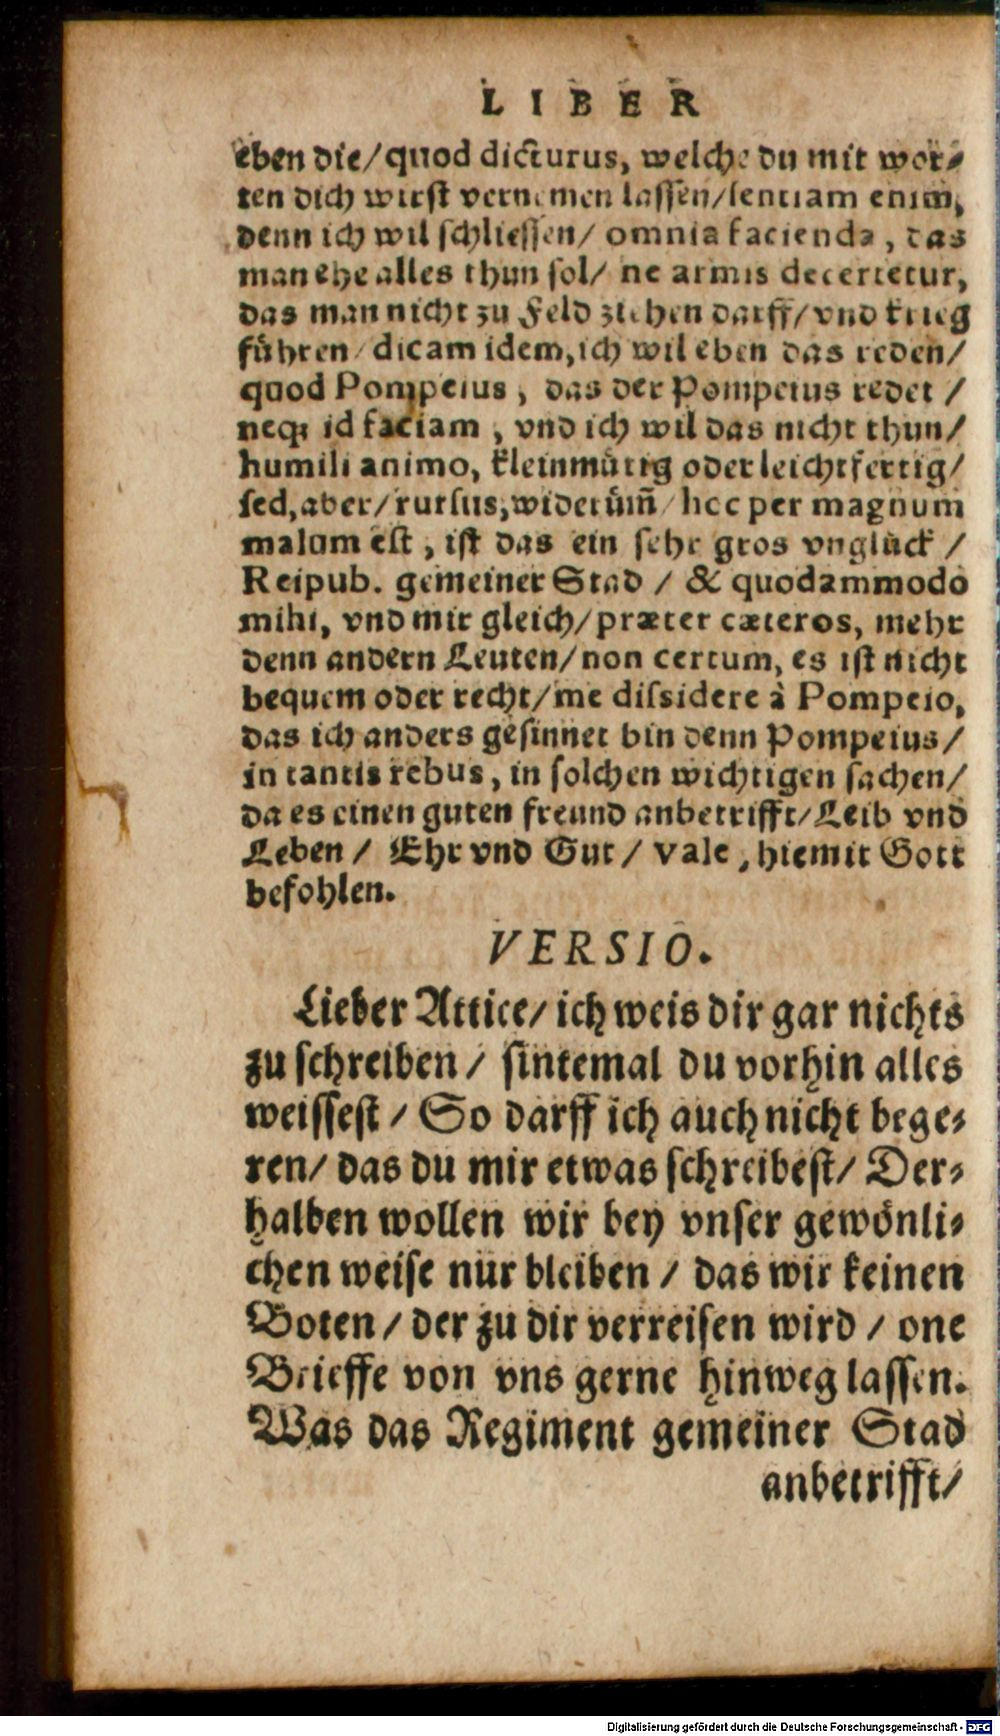 LIBER
eben die/quod dicturus, welche du mit wor⸗
ten dich wirst vernemen lassen/sentiam enim,
denn ich wil schliessen/ omnia facienda, das
man ehe alles thun sol/ ne armis decertetur,
das man nicht zu Feld ziehen darff/vnd krieg
führen/dicam idem, ich wil eben das reden/
quod Pompeius, das der Pompeius redet /
neq; id faciam, vnd ich wil das nicht thun/
humili animo, kleinmütig oder leichtfertig/
sed, aber/rursus, widerum̃/hoc per magnum
malum est, ist das ein sehr gros vnglück /
Reipub. gemeiner Stad / & quodammodo
mihi, vnd mir gleich/præter cæteros, mehr
denn andern Leuten/non certum, es ist nicht
bequem oder recht/me dissidere à Pompeio,
das ich anders gesinnet bin denn Pompeius/
in tantis rebus, in solchen wichtigen sachen/
da es einen guten freund anbetrifft/Leib vnd
Leben / Ehr vnd Gut / vale, hiemit Gott
befohlen.
VERSIO.
Lieber Attice/ ich weis dir gar nichts
zu schreiben / sintemal du vorhin alles
weissest / So darff ich auch nicht bege⸗
ren/ das du mir etwas schreibest/ Der⸗
halben wollen wir bey vnser gewönli⸗
chen weise nur bleiben / das wir keinen
Boten / der zu dir verreisen wird / one
Brieffe von vns gerne hinweg lassen.
Was das Regiment gemeiner Stad
anbetrifft/
Digitalisierung gefördert durch die Deutsche Forschungsgemeinschaft - DFG